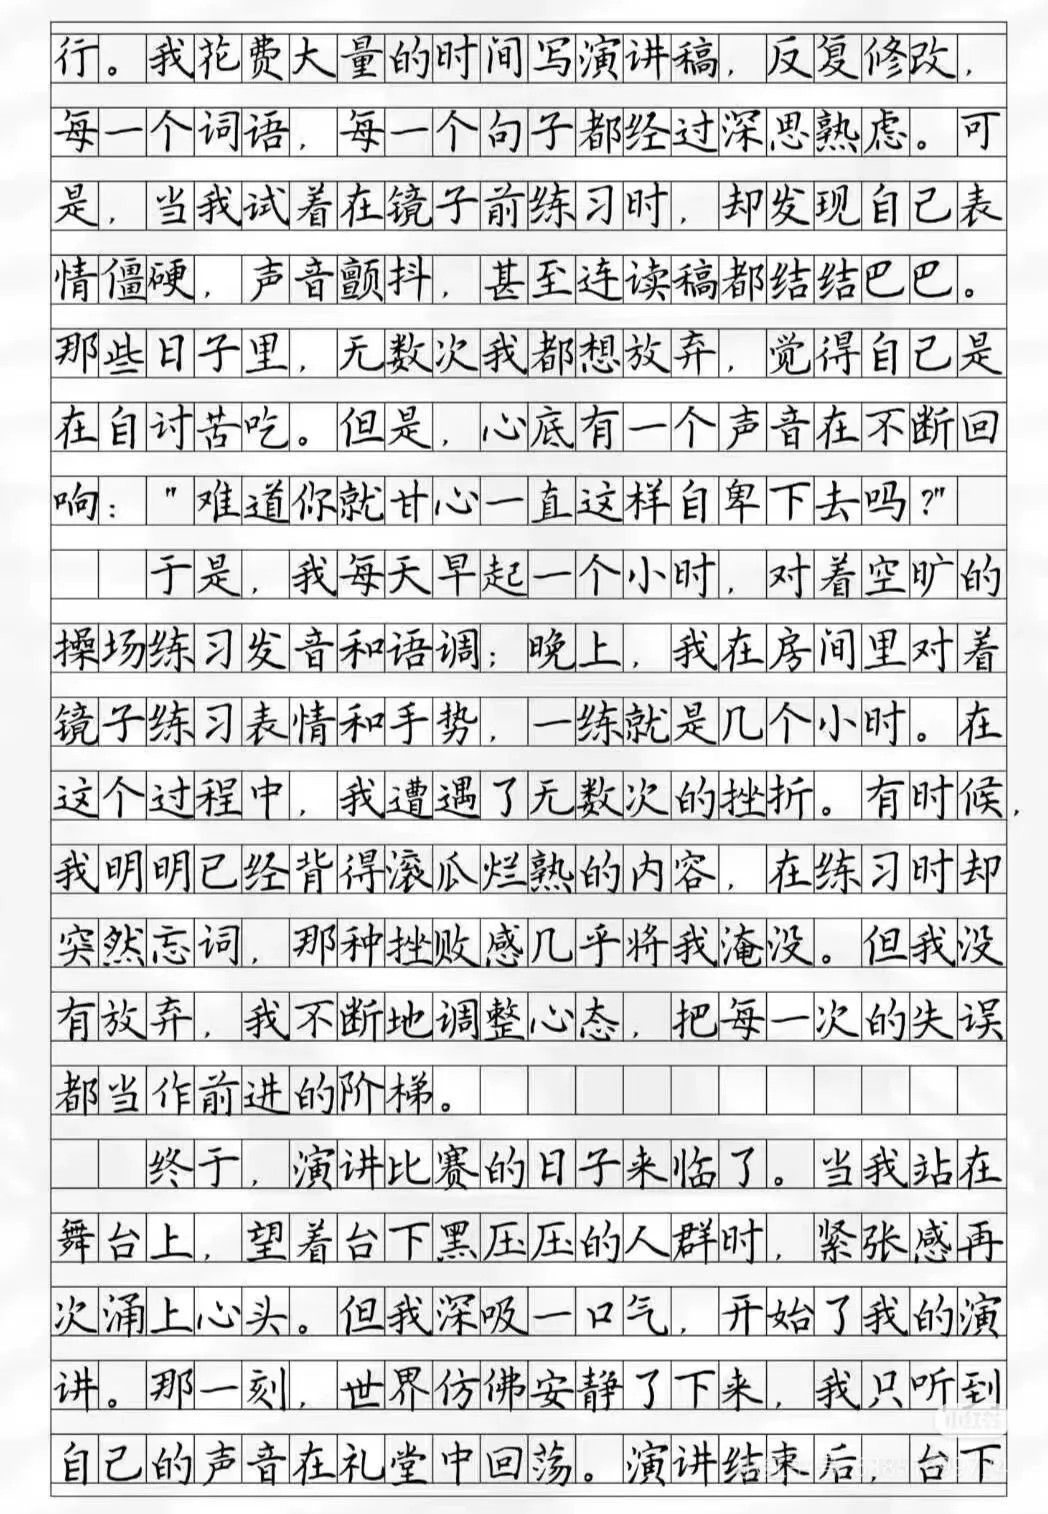 行。我花费大量的时间写演讲稿，反复修改，
每一个词语，每一个句子都经过深思熟虑。可
是，当我试着在镜子前练习时，却发现自己表
情僵硬，声音颤抖，甚至连读稿都结结巴巴。
那些日子里，无数次我都想放弃，觉得自己是
在自讨苦吃。但是，心底有一个声音在不断回
响："难道你就甘心一直这样自卑下去吗?"
于是，我每天早起一个小时，对着空旷的
操场练习发音和语调；晚上，我在房间里对着
镜子练习表情和手势，一练就是几个小时。在
这个过程中，我遭遇了无数次的挫折。有时候，
我明明已经背得滚瓜烂熟的内容，在练习时却
突然忘词，那种挫败感几乎将我淹没。但我没
有放弃，我不断地调整心态，把每一次的失误
都当作前进的阶梯。
终于，演讲比赛的日子来临了。当我站在
舞台上，望着台下黑压压的人群时，紧张感再
次涌上心头。但我深吸一口气，开始了我的演
讲。那一刻，世界仿佛安静了下来，我只听到
自己的声音在礼堂中回荡。演讲结束后，台下